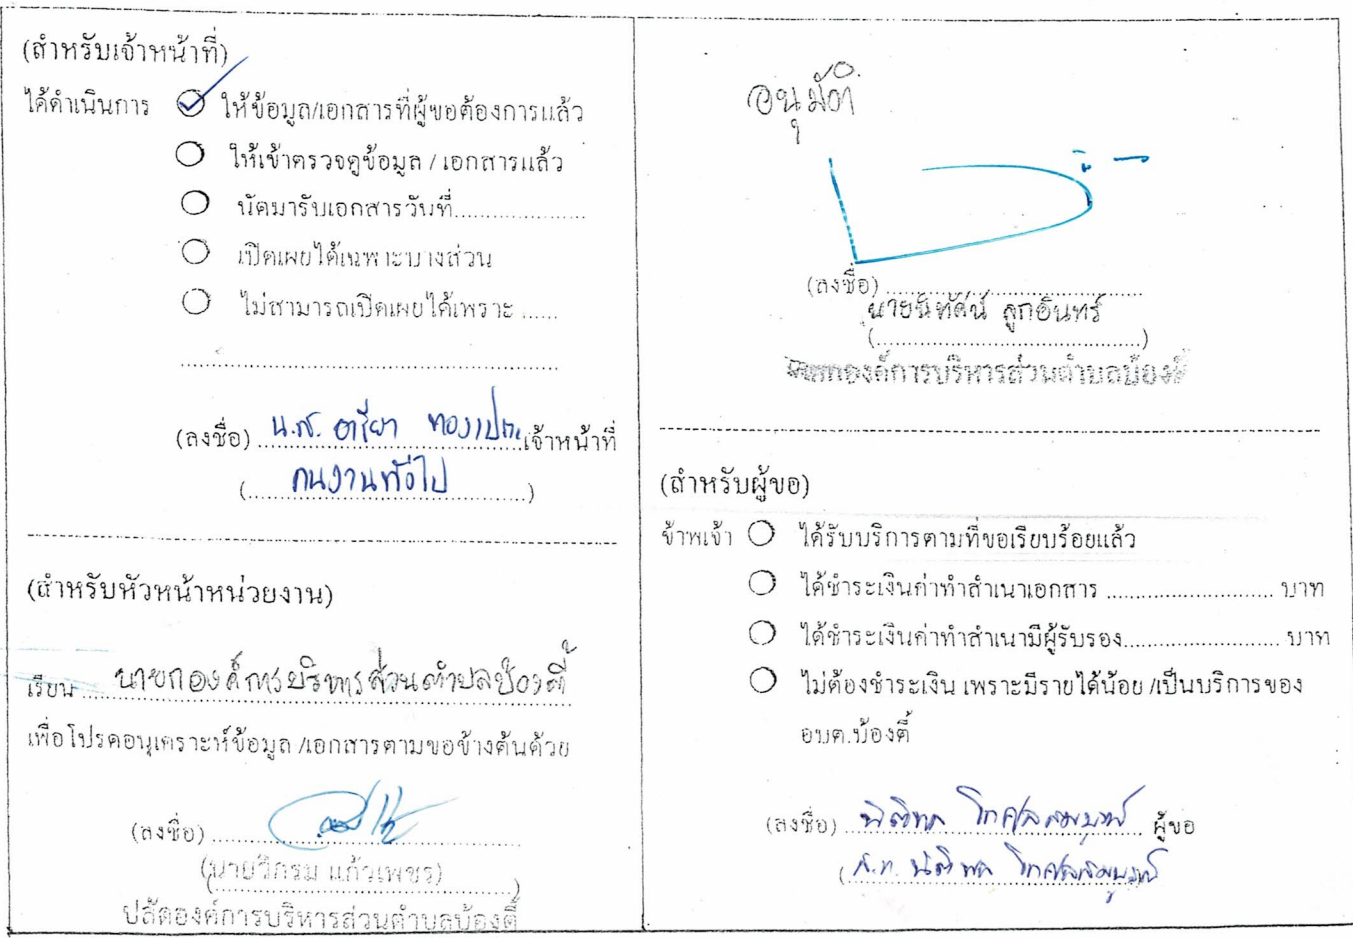 (สำหรับเจ้าหน้าที่)
ได้ดำเนินการ ให้ข้อมูล/เอกสารที่ผู้ขอต้องการแล้ว
ให้เข้าตรวจดูข้อมูล / เอกสารแล้ว
นัดมารับเอกสารวันที่....................
เปิดเผยได้เฉพาะบางส่วน
ไม่สามารถเปิดเผยได้เพราะ ......
(ลงชื่อ) น.ส. อารียา เจ้าหน้าที่
(คนงานทั่วไป)
(สำหรับหัวหน้าหน่วยงาน)
เรียน นายกองค์การบริหารส่วนตำบลบ้องตี้
เพื่อโปรดอนุเคราะห์ข้อมูล /เอกสารตามขอข้างต้นด้วย
(ลงชื่อ)
(นายวิกรม แก้วเพชร)
ปลัดองค์การบริหารส่วนตำบลบ้องตี้
อนุมัติ
(ลงชื่อ)
นายนิทัศน์ ลูกอินทร์
(........................................)
นายกองค์การบริหารส่วนตำบลบ้องตี้
(สำหรับผู้ขอ)
ข้าพเจ้า ได้รับบริการตามที่ขอเรียบร้อยแล้ว
ได้ชำระเงินค่าทำสำเนาเอกสาร ............................ บาท
ได้ชำระเงินค่าทำสำเนามีผู้รับรอง.......................... บาท
ไม่ต้องชำระเงิน เพราะมีรายได้น้อย /เป็นบริการของ
อบต.บ้องตี้
(ลงชื่อ) ผู้ขอ